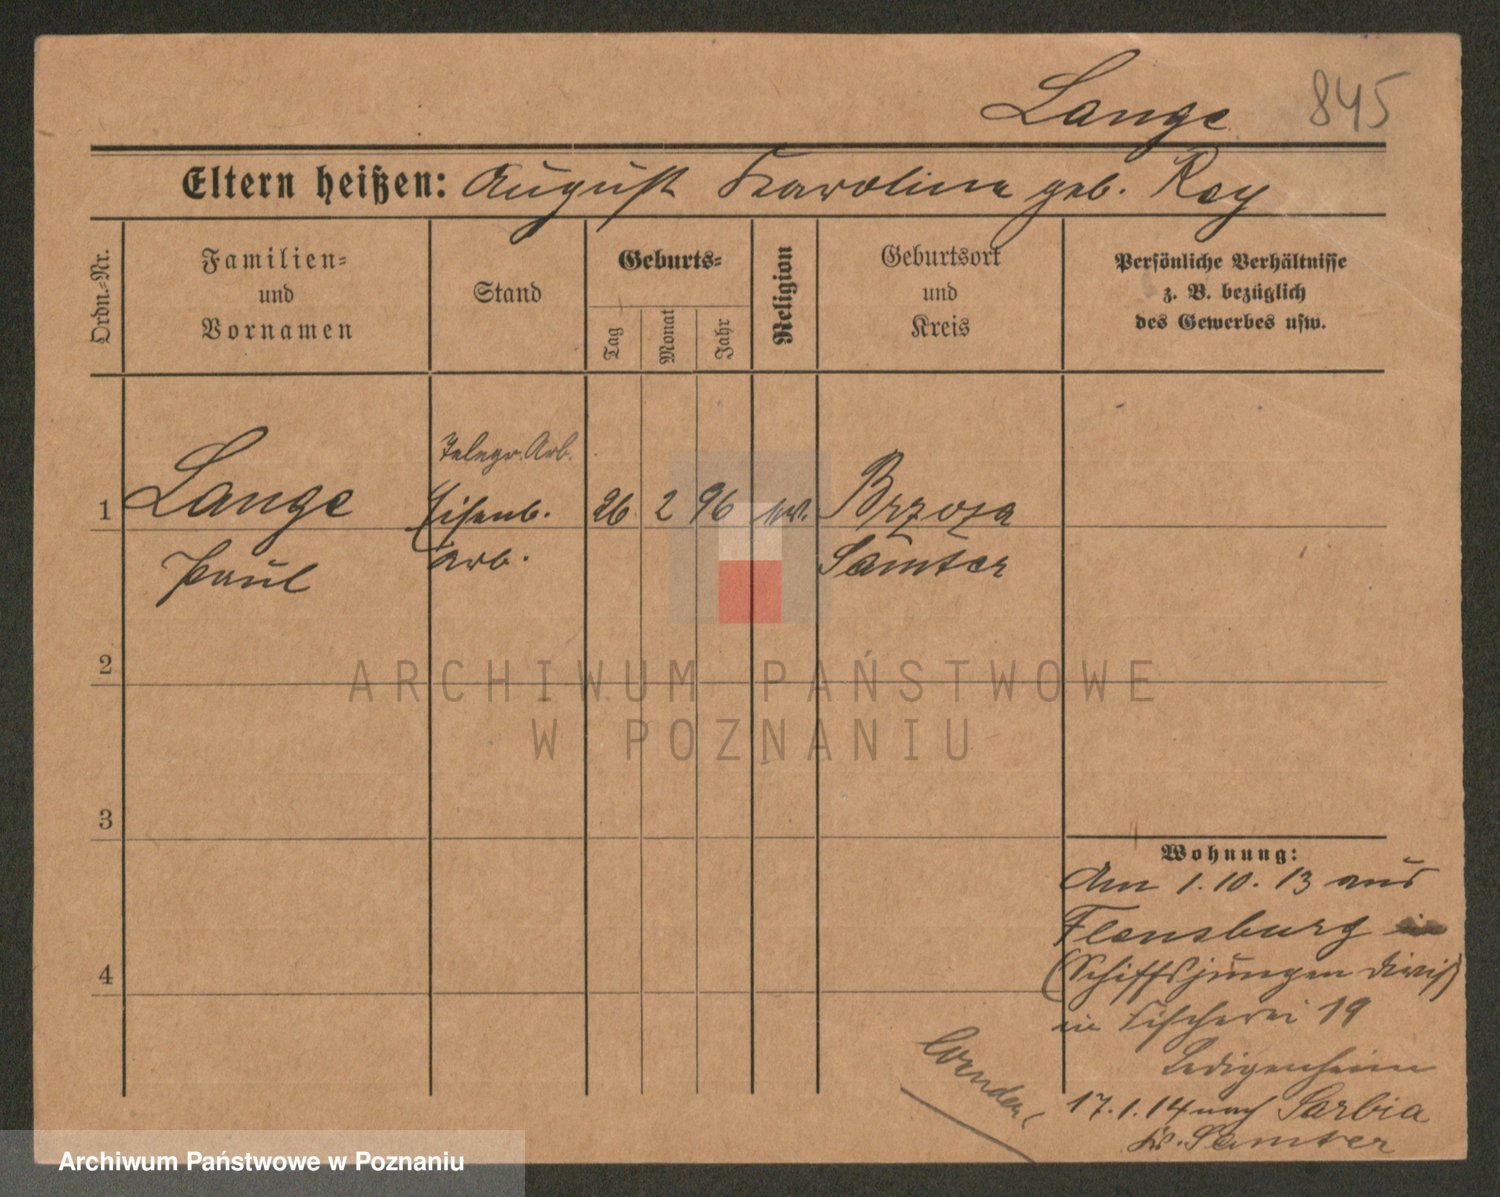 Lange 845
Eltern heißen: August Karoline geb. Rey
Ordn.-Nr.
Familien-
und
Vornamen
Stand
Geburts-
Tag
Monat
Jahr
Religion
Geburtsort
und
Kreis
Persönliche Verhältnisse
z. B. bezüglich
des Gewerbes usw.
Telegr. Arb.
1 Lange Eisenb. 26 2 96 ev. Brzoza
Paul Arb. Samter
2
ARCHIWUM PAŃSTWOWE
W POZNANIU
3
Wohnung:
Am 1.10.13 aus
Flensburg
(Schiffsjungen Divis)
in Fischerei 19
4
Ledigenheim
Wenden
17.1.14 nach Sarbia
Kr. Samter
Archiwum Państwowe w Poznaniu